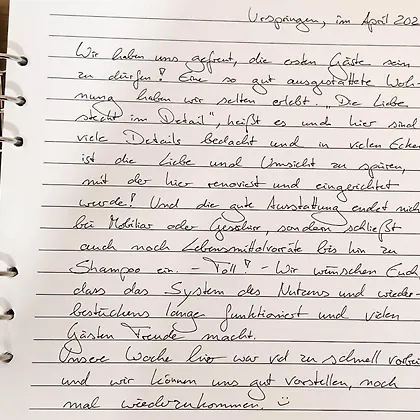 Urspringen, im April 202
Wir haben uns gefreut, die ersten Gäste sein
zu dürfen! Eine so gut ausgestattete Woh-
nung haben wir selten erlebt. "Die Liebe
steckt im Detail", heißt es und hier sind
viele Details bedacht und in vielen Ecken
ist die Liebe und Umsicht zu spüren,
mit der hier renoviert und eingerichtet
wurde! Und die gute Ausstattung endet nicht
bei Mobiliar oder Geschirr, sondern schließt
auch noch Lebensmittelvorräte bis hin zu
Shampoo ein. - Toll! - Wir wünschen Euch
dass das System des Nutzens und wieder-
bestückens lange funktioniert und vielen
Gästen Freude macht.
Unsere Woche hier war viel zu schnell vorbei
und wir können uns gut vorstellen, noch
mal wiederzukommen. ☺